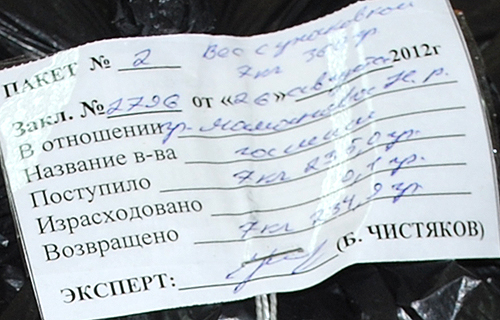 ПАКЕТ № 2 Вес с упаковкой
7кг 365гр.
Закл. № 2796 от «26» августа 2012г
В отношении гр. Н. Р.
Название в-ва гашиш
Поступило 7кг 235,0 гр.
Израсходовано 0,1 гр.
Возвращено 7кг 234,9 гр.
ЭКСПЕРТ: (Б. ЧИСТЯКОВ)